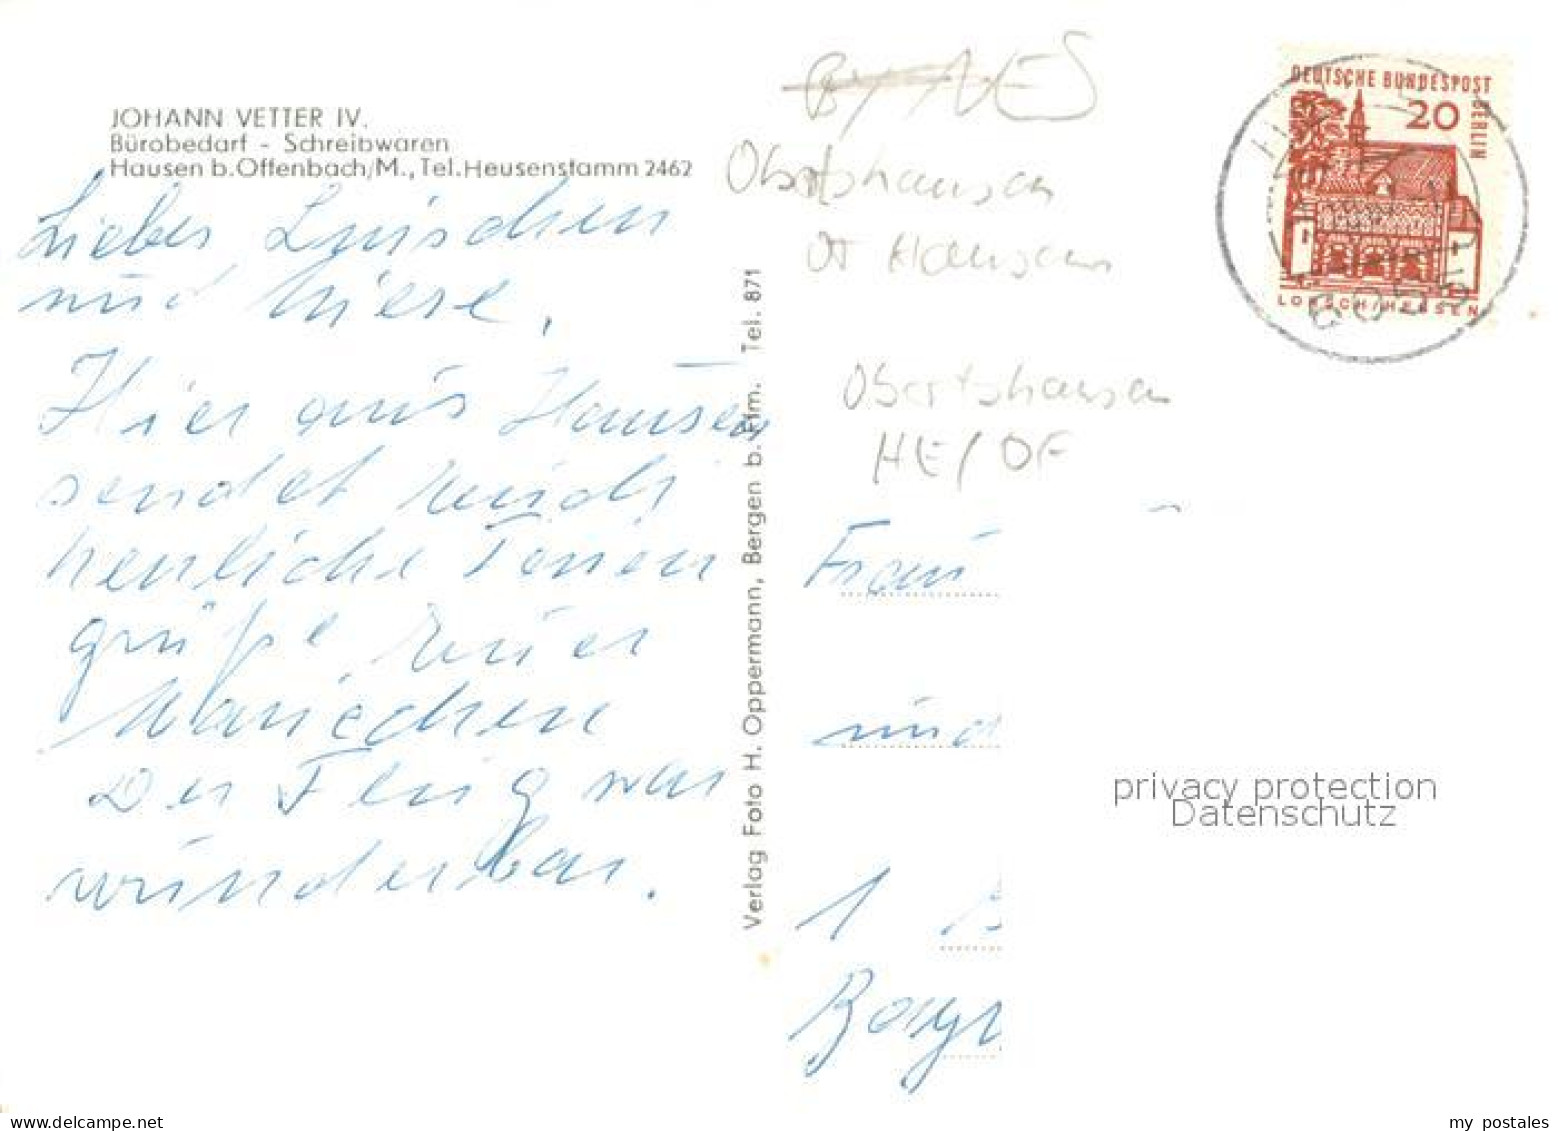 JOHANN VETTER IV.
Bürobedarf - Schreibwaren
Hausen b. Offenbach/M., Tel. Heusenstamm 2462
Liebes Luischen
und Miese,
Hier aus Hausen
sendet euch
herzliche Ferien
grüße euer
Mariechen
Der Flug war
wunderbar.
Verlag Foto H. Oppermann, Bergen b. Ffm. Tel. 871
BY/NES
Obertshausen
OT Hausen
Obertshausen
HE/OF
DEUTSCHE BUNDESPOST
BERLIN
20
LORSCH/HESSEN
Frau
und
1
privacy protection
Datenschutz
my postales